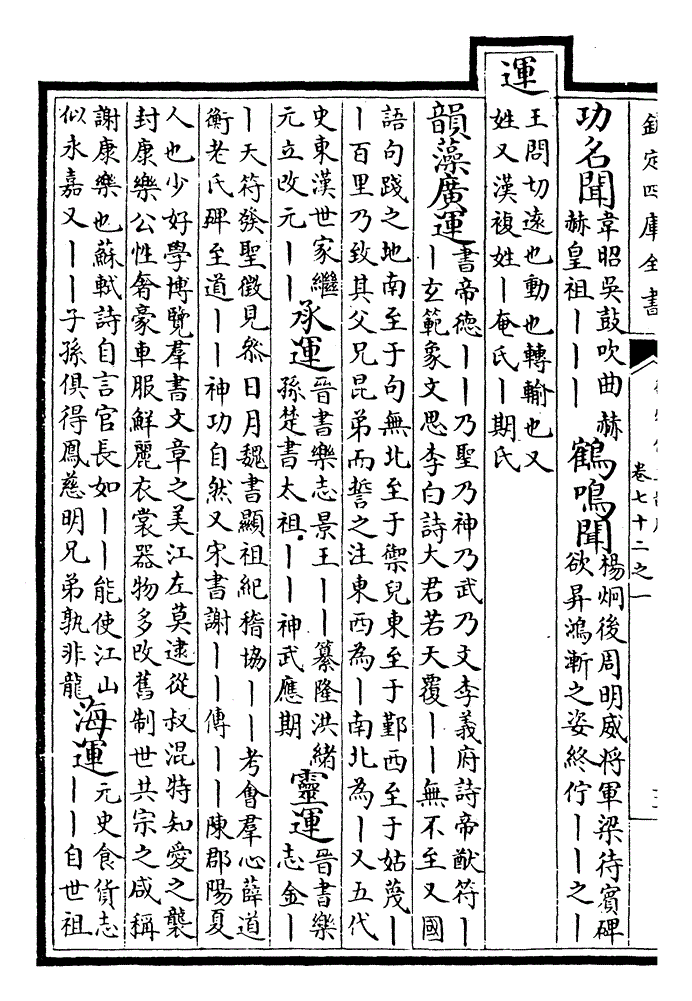 欽定四庫全書
卷七十二之一
功名聞
韋昭吳鼓吹曲赫
赫皇祖丨丨丨
鶴鳴聞
楊炯後周明威将軍梁待賓碑
欲昇鴻漸之姿終佇丨丨之丨
運
王問切遠也動也轉輸也又
姓又漢複姓丨奄氏丨期氏
韻藻廣運
書帝德丨丨乃聖乃神乃武乃文李義府詩帝猷符丨
丨玄範象文思李白詩大君若天覆丨丨無不至又國
語句踐之地南至于句無北至于禦兒東至于鄞西至于姑蔑丨
丨百里乃致其父兄昆弟而誓之注東西為丨南北為丨又五代
史東漢世家繼
元立改元丨丨
承運
晉書樂志景王丨丨纂隆洪緒
孫楚書太祖丨丨神武應期
靈運
晉書樂
志金丨
丨天符發聖徵見叅日月魏書顯祖紀稽協丨丨考會羣心薛道
衡老氏碑至道丨丨神功自然又宋書謝丨丨傳丨丨陳郡陽夏
人也少好學博覽羣書文章之美江左莫逮從叔混特知愛之襲
封康樂公性奢豪車服鮮麗衣裳器物多改舊制世共宗之咸稱
謝康樂也蘇軾詩自言官長如丨丨能使江山
似永嘉又丨丨子孫俱得鳳慈明兄弟孰非龍
海運
元史食貨志
丨丨自世祖